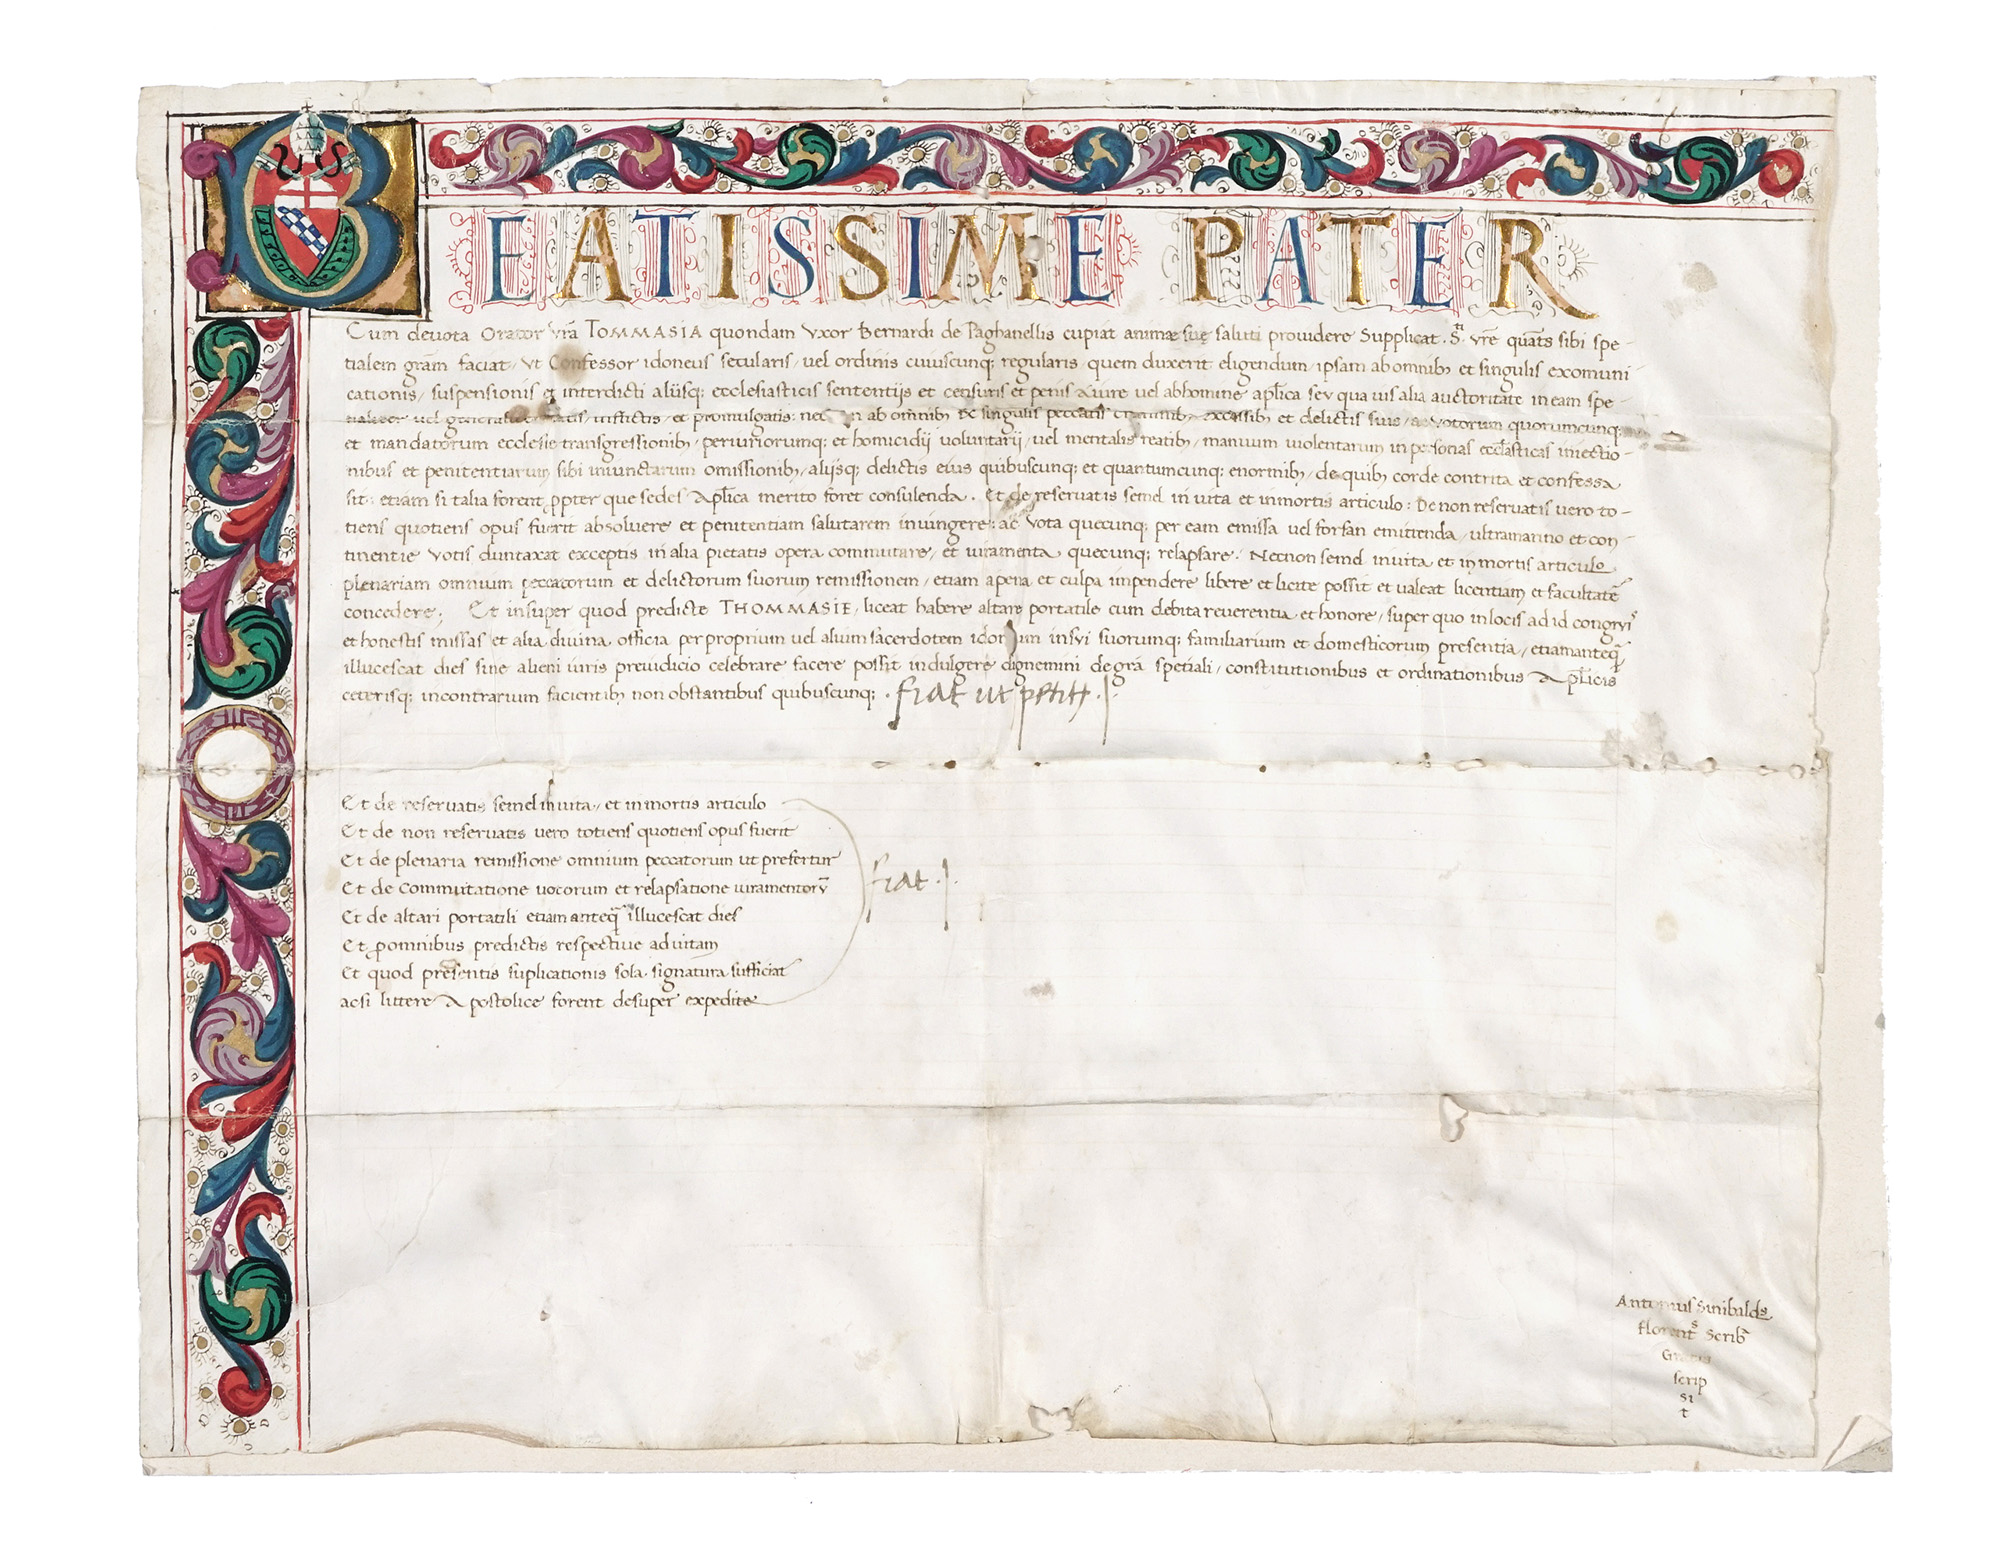 BEATISSIME PATER
Cum devota Orator vrā TOMMASIA quondam Vxor Bernardi de Paghanellis cupiat animæ sue saluti prouidere Supplicat. S. vrē quats sibi spe-
tialem grām faciat, Vt Confessor idoneus secularis, vel ordinis cuiuscunq; regularis, quem duxerit eligendum, ipsam ab omnib; et singulis exomuni
cationis, suspensionis et interdicti alijsq; ecclesiasticis sententijs et censuris et penis a iure vel ab homine apl̄ica seu qua uis alia auctoritate in eam spe-
vel inflictis, et promulgatis: ab omnib; et singulis peccatis criminib; excessib; et delictis suis, ac votorum quorumcunq;
et mandatorum ecclesie transgressionib;, periuriorumq; et homicidij voluntarij, vel mentalis reatib;, manuum uiolentarum in personas ecclāsticas iniectio-
nibus et penitentiarum sibi iniunctarum omissionib;, alijsq; delictis eius quibuscunq; et quantumcunq; enormib;, de quib; corde contrita et confessa
sit: etiam si talia forent ppter que sedes Apl̄ica merito foret consulenda. Et de reservatis semel in vita et in mortis articulo: De non reservatis vero to-
tiens quotiens opus fuerit absoluere et penitentiam salutarem iniungere: ac Vota quecunq; per eam emissa vel forsan emittenda, ultramarino et con-
tinentie Votis duntaxat exceptis in alia pietatis opera commutare, et iuramenta quecunq; relapsare. Necnon semel in uita et in mortis articulo
plenariam omnium peccatorum et delictorum suorum remissionem, etiam a pena et culpa impendere libere et licite possit et valeat licentiam et facultatē
concedere; Et insuper quod predicte THOMMASIE, liceat habere altare portatile cum debita reverentia et honore, super quo in locis ad id congruis
et honestis missas et alia diuina officia per proprium vel alium sacerdotem idoneum in sui suorumq; familiarium et domesticorum presentia, etiam anteq̄
illucescat dies sine alieni iuris preiudicio celebrare facere possit indulgere dignemini de grā spetiali, constitutionibus et ordinationibus Apl̄icis
ceterisq; in contrarium facientib; non obstantibus quibuscunq; . fiat ut petitr .J.
Et de reservatis semel in uita, et in mortis articulo
Et de non reservatis vero totiens quotiens opus fuerit
Et de plenaria remissione omnium peccatorum ut prefertur
Et de Commutatione uotorum et relapsatione iuramentorū
Et de altari portatili etiam anteq̄ illucescat dies
Et p omnibus predictis respective ad uitam
Et quod presentis suplicationis sola signatura sufficiat
ac si littere Apostolice forent desuper expedite
fiat .J.
Antonius Sinibalds
florents Scribā
Gratis
scrip
si
t